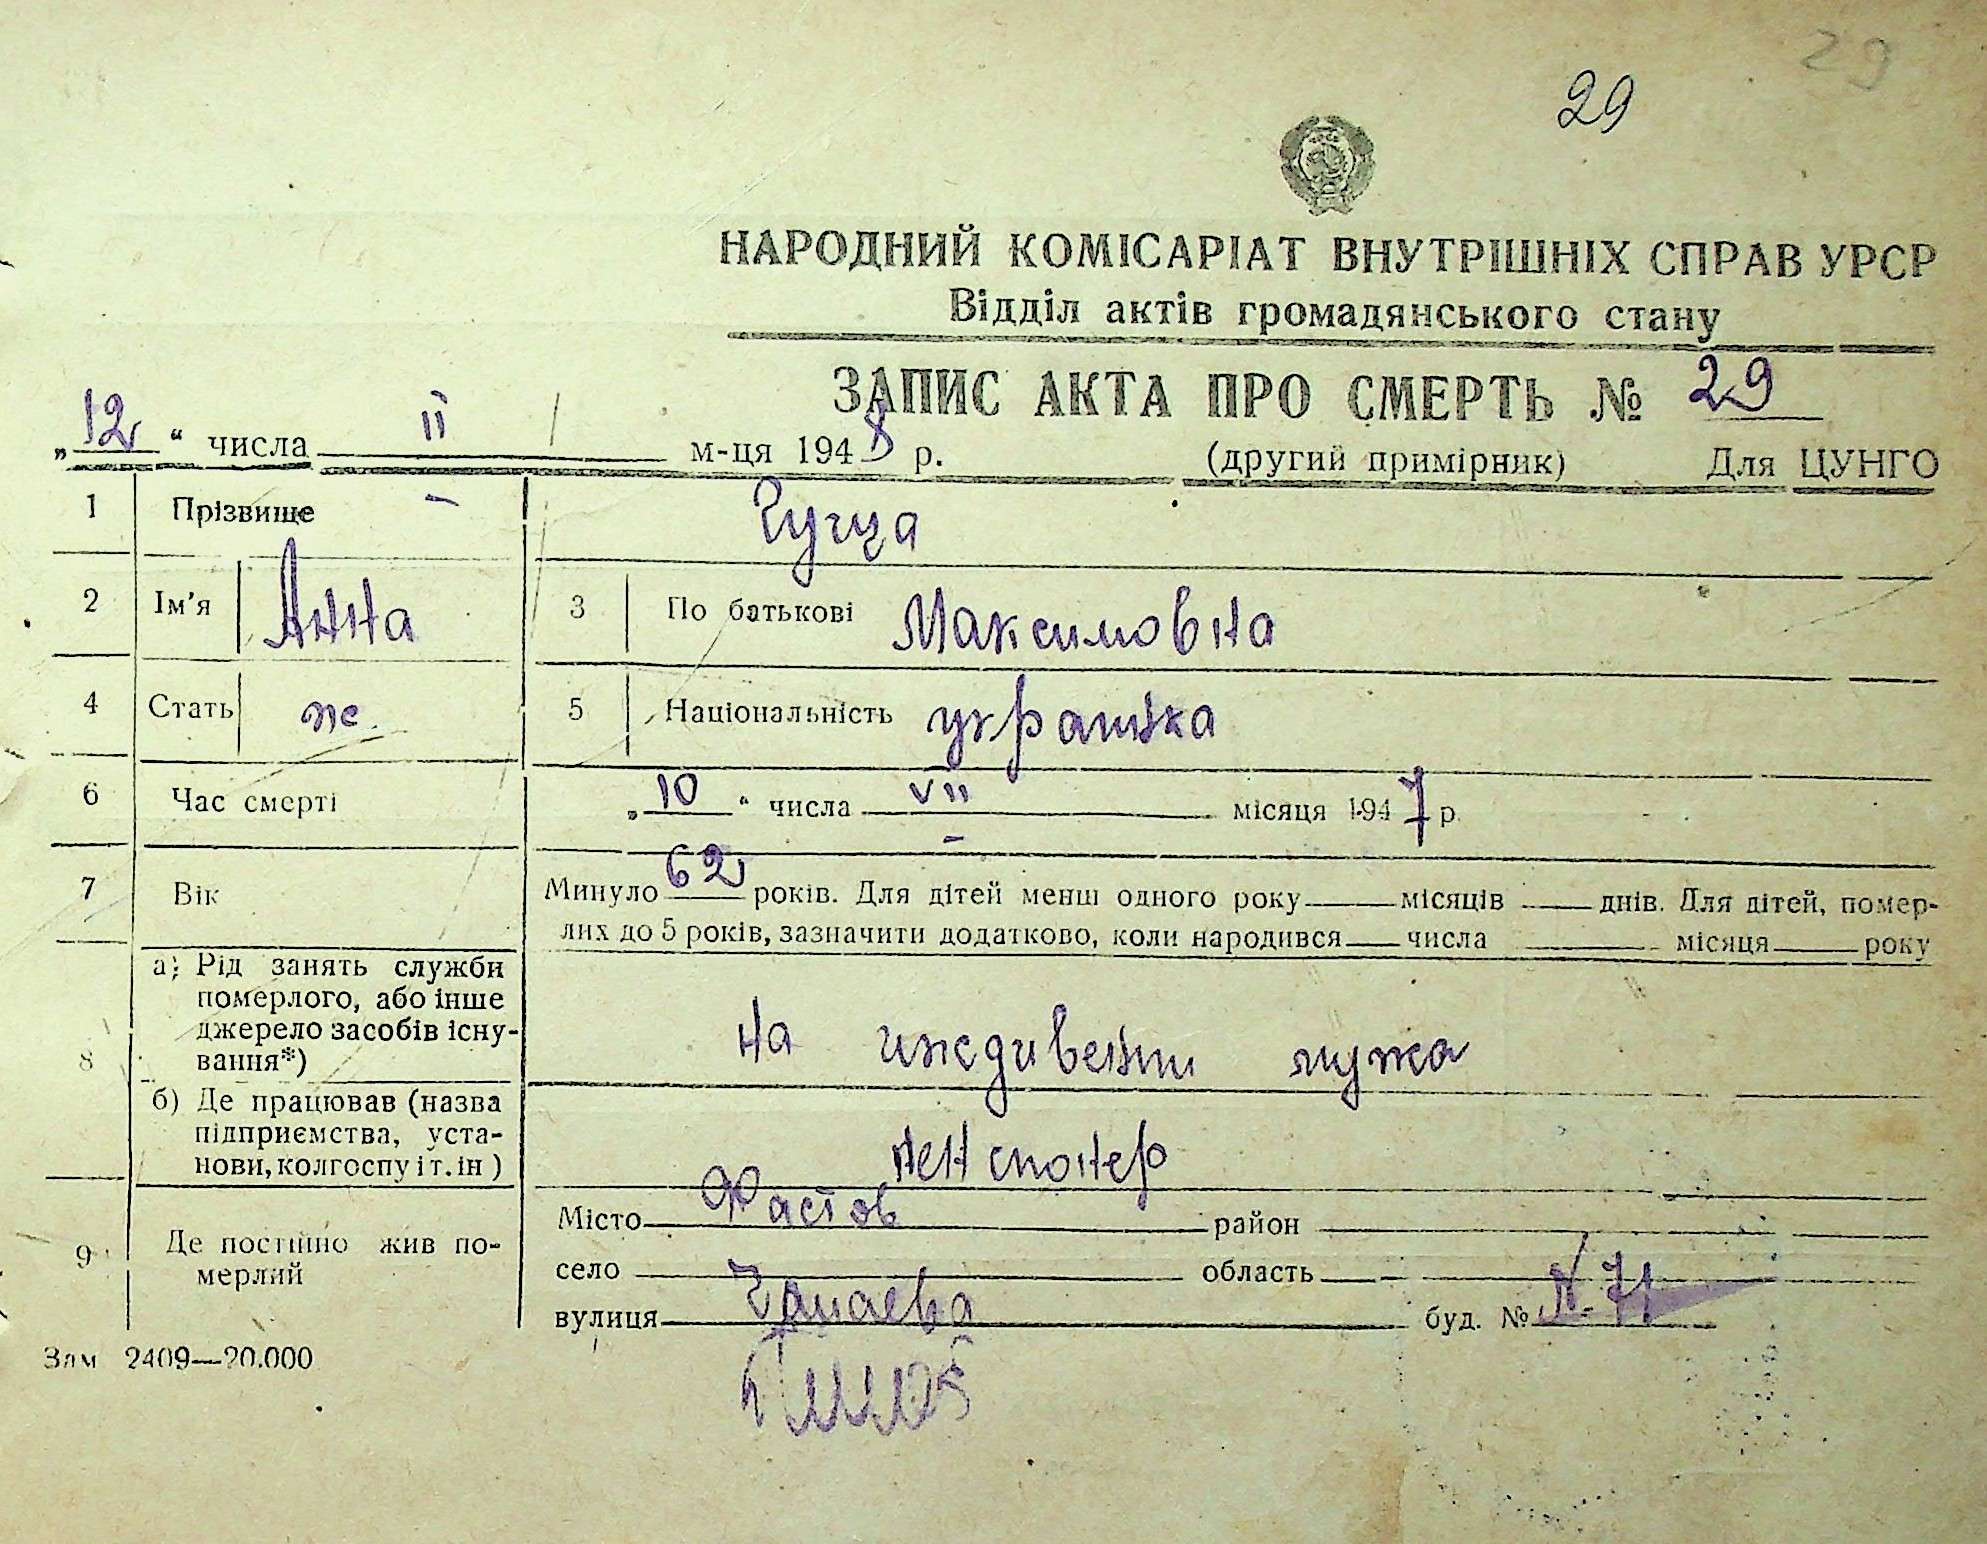 29
29
НАРОДНИЙ КОМІСАРІАТ ВНУТРІШНІХ СПРАВ УРСР
Відділ актів громадянського стану
ЗАПИС АКТА ПРО СМЕРТЬ № 29
„12“ числа II м-ця 1948 р. (другий примірник) Для ЦУНГО
1 Прізвище
2 Ім'я Анна 3 По батькові Максимовна
4 Стать ж. 5 Національність украинка
6 Час смерті „10“ числа VII місяця 1947 р.
7 Вік Минуло 62 років. Для дітей менш одного року місяців днів. Для дітей, помер-
лих до 5 років, зазначити додатково, коли народився числа місяця року
8 а) Рід занять служби
померлого, або інше
джерело засобів існу-
вання*) на иждивении мужа
б) Де працював (назва
підприємства, уста-
нови, колгоспу і т. ін) пенсионер
9 Де постійно жив по-
мерлий
Місто Фастов район
село область
вулиця Чапаева буд. № N 71
Зам 2409—20.000